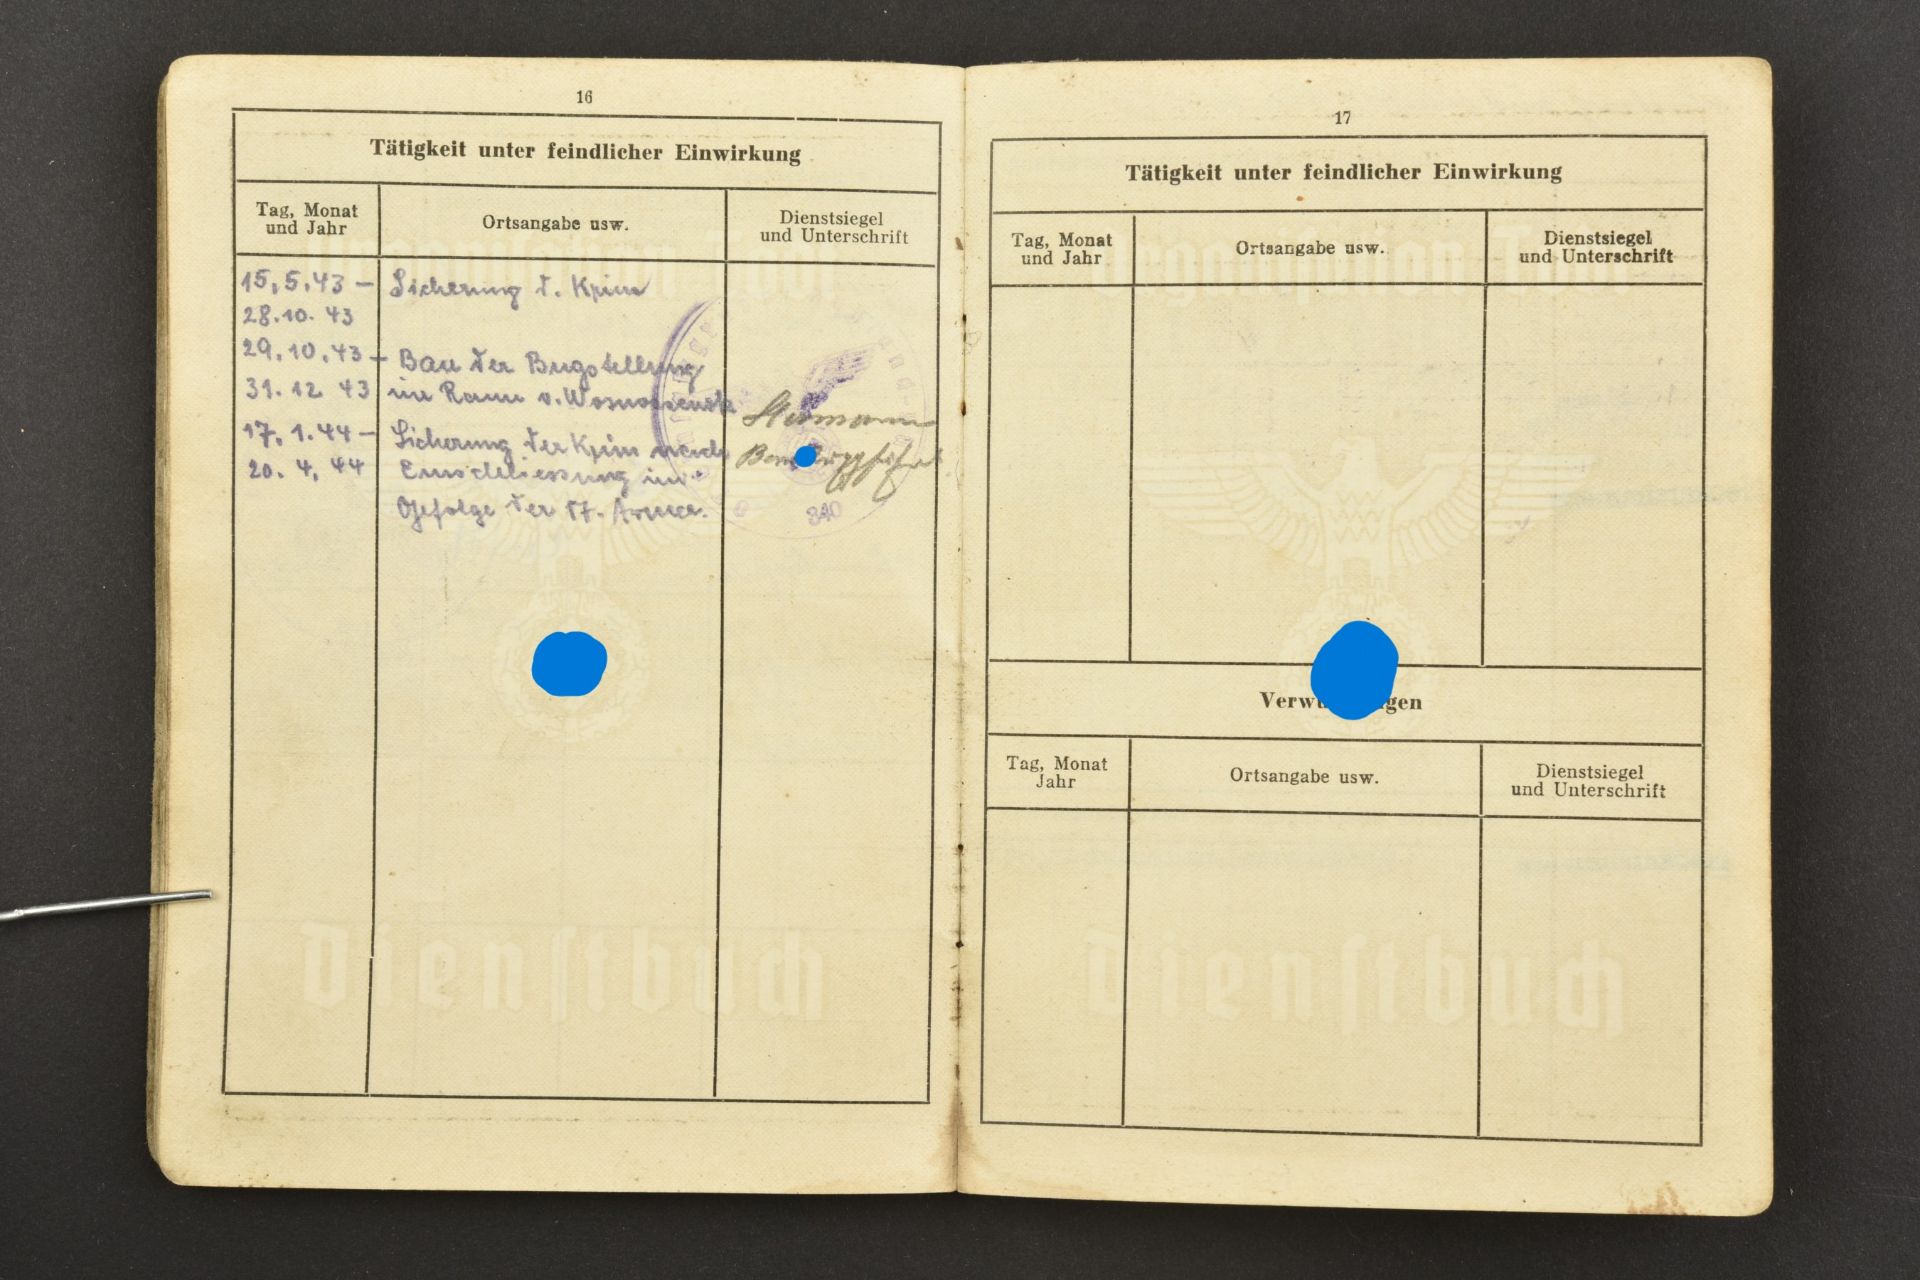 16
Tätigkeit unter feindlicher Einwirkung
Tag, Monat
und Jahr
Ortsangabe usw.
Dienstsiegel
und Unterschrift
15.5.43 – Sicherung d. Krim
28.10.43
29.10.43 – Bau der Bugstellung
31.12.43 im Raum v. Wosnossensk
17.1.44 – Sicherung der Krim nach
20.4.44 Einschliessung im
Gefolge der 17. Armee.
340
Organisation Todt
Dienstbuch
17
Tätigkeit unter feindlicher Einwirkung
Tag, Monat
und Jahr
Ortsangabe usw.
Dienstsiegel
und Unterschrift
Organisation Todt
Tag, Monat
Jahr
Ortsangabe usw.
Dienstsiegel
und Unterschrift
Dienstbuch